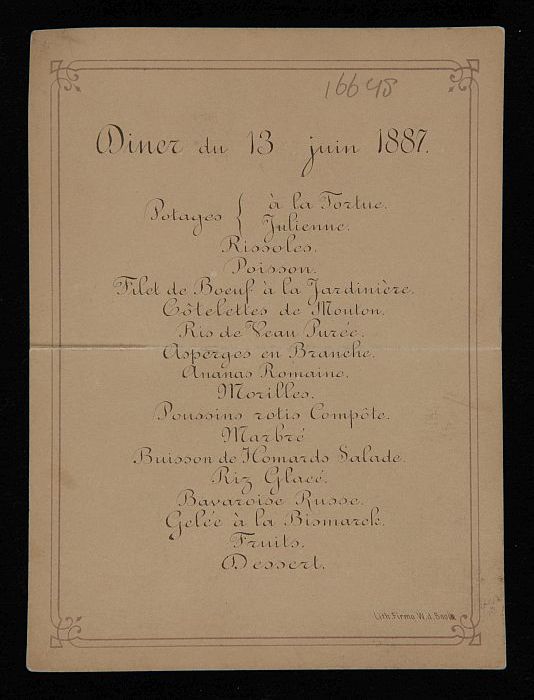 16648
Diner du 13 juin 1887.
Potages { à la Tortue.
Julienne.
Rissoles.
Poisson.
Filet de Boeuf à la Jardinière.
Côtelettes de Mouton.
Ris de Veau Purée.
Asperges en Branche.
Ananas Romaine.
Morilles.
Poussins rotis Compôte.
Marbré
Buisson de Homards Salade.
Riz Glacé.
Bavaroise Russe.
Gelée à la Bismarck.
Fruits.
Dessert.
Lith. Firma W. d.